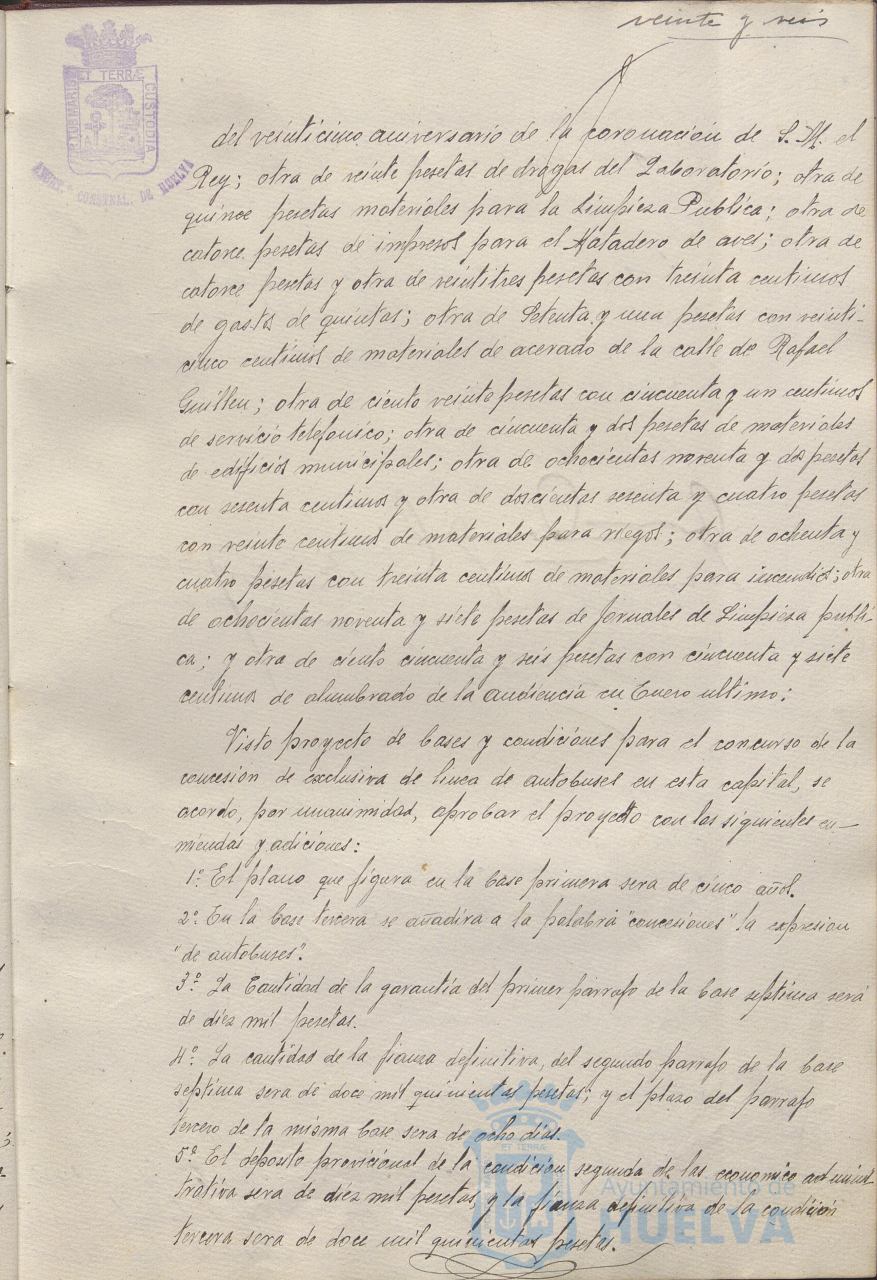 veinte y seis
ET TERRÆ
CUSTODIA
DE HUELVA
del veinticinco aniversario de la coronacion de S. M. el
Rey; otra de veinte pesetas de drogas del Laboratorio; otra de
quince pesetas materiales para la Limpieza Publica; otra de
catorce pesetas de impresos para el Matadero de aves; otra de
catorce pesetas y otra de veintitres pesetas con treinta centimos
de gastos de quintas; otra de Setenta y una pesetas con veinti-
cinco centimos de materiales de acerado de la calle de Rafael
Guillen; otra de ciento veinte pesetas con cincuenta y un centimos
de servicio telefonico; otra de cincuenta y dos pesetas de materiales
de edificios municipales; otra de ochocientas noventa y dos pesetas
con sesenta centimos y otra de doscientas sesenta y cuatro pesetas
con veinte centimos de materiales para riegos; otra de ochenta y
cuatro pesetas con treinta centimos de materiales para incendios; otra
de ochocientas noventa y siete pesetas de jornales de Limpieza publi-
ca; y otra de ciento cincuenta y seis pesetas con cincuenta y siete
centimos de alumbrado de la audiencia en Enero ultimo:
Visto proyecto de bases y condiciones para el concurso de la
concesion de exclusiva de linea de autobuses en esta capital, se
acordo, por unanimidad, aprobar el proyecto con las siguientes en-
miendas y adiciones:
1º. El plazo que figura en la base primera sera de cinco años.
2º. En la base tercera se añadira a la palabra "concesiones" la expresion
"de autobuses".
3º. La Cantidad de la garantia del primer párrafo de la base septima será
de diez mil pesetas.
4º. La cantidad de la fianza definitiva, del segundo parrafo de la base
septima sera de doce mil quinientas pesetas; y el plazo del parrafo
tercero de la misma base sera de ocho dias.
5º. El deposito provicional de la condicion segunda de las economico adminis-
trativa sera de diez mil pesetas, y la fianza definitiva de la condición
tercera sera de doce mil quinientas pesetas.
Ayuntamiento de
HUELVA